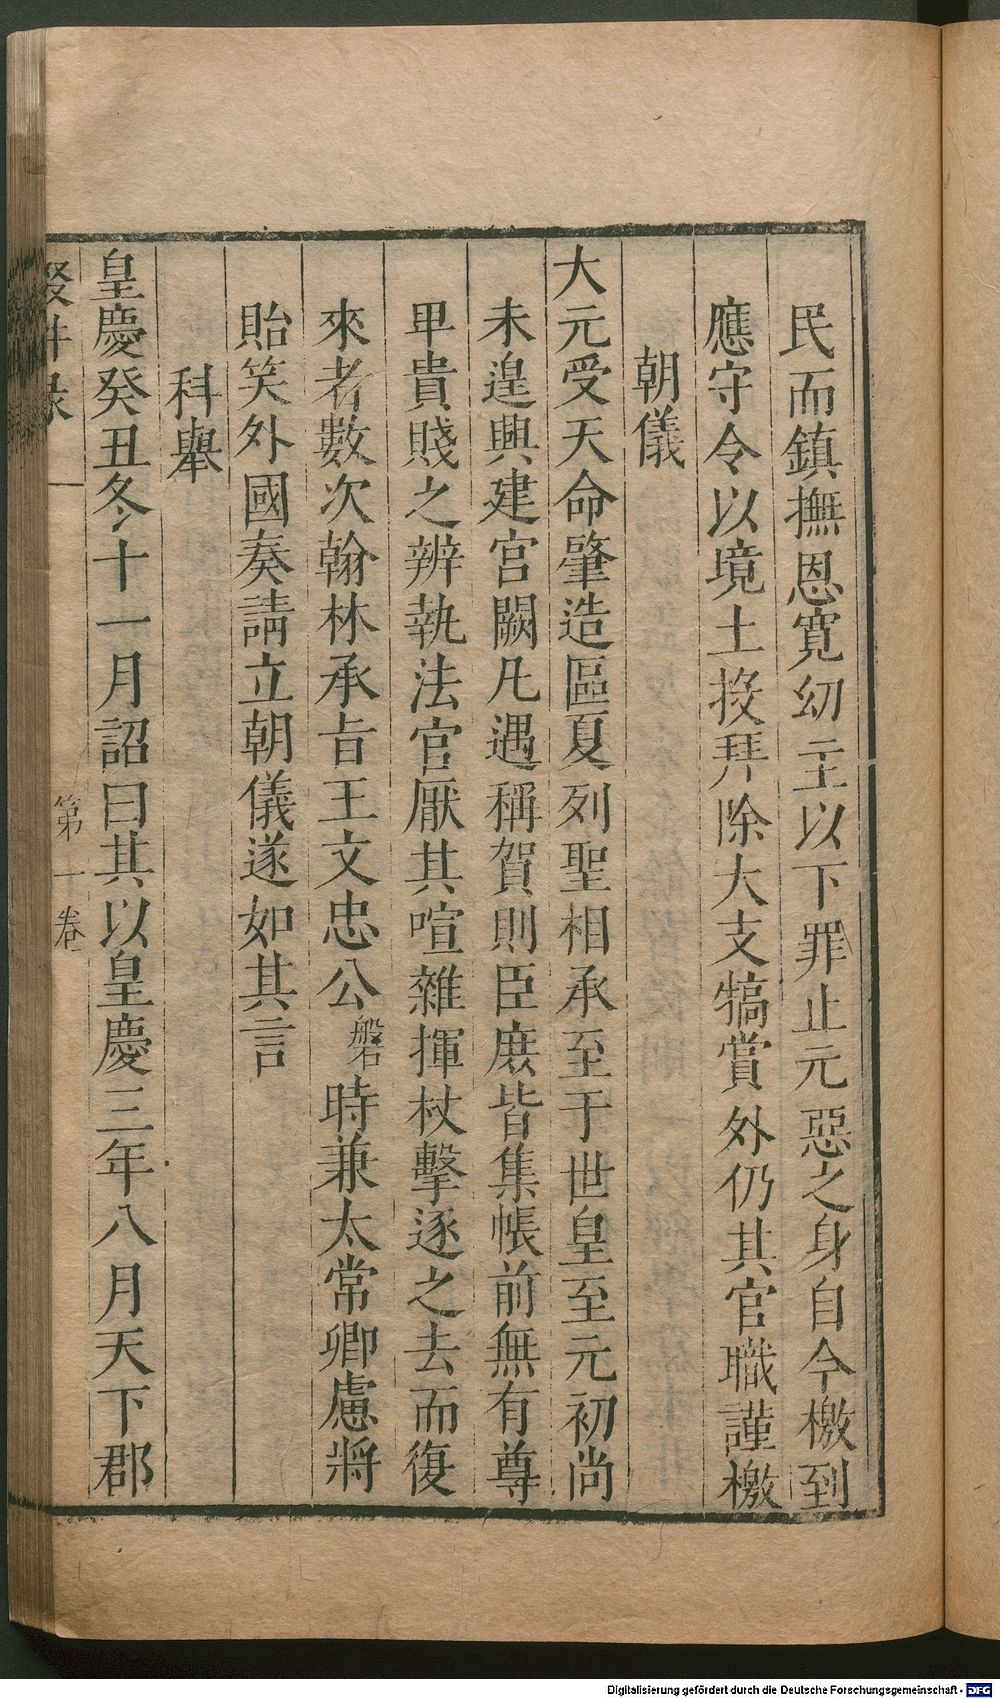 民而鎮撫恩寛幼主以下罪止元惡之身自今檄到
應守令以境土投拜除大支犒賞外仍其官職謹檄
朝儀
大元受天命肇造區夏列聖相承至于世皇至元初尚
未遑興建宮闕凡遇稱賀則臣庶皆集帳前無有尊
卑貴賤之辨執法官厭其喧雜揮杖擊逐之去而復
來者數次翰林承旨王文忠公磐時兼太常卿慮將
貽笑外國奏請立朝儀遂如其言
科舉
皇慶癸丑冬十一月詔曰其以皇慶三年八月天下郡
第十卷
Digitalisierung gefördert durch die Deutsche Forschungsgemeinschaft - DFG